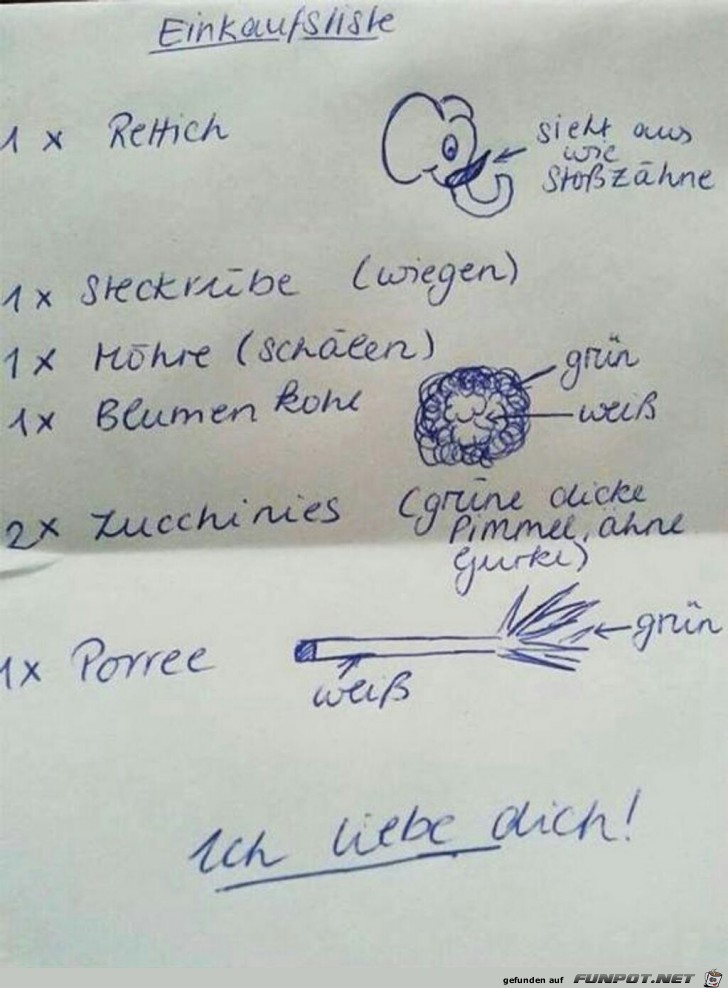 Einkaufsliste
1 x Rettich
sieht aus
wie
Stoßzähne
1 x Steckrübe (wiegen)
1 x Möhre (schälen)
grün
1 x Blumenkohl
weiß
2 x Zucchinies (grüne dicke
Pimmel, ähne
Gurke)
1 x Porree
grün
weiß
Ich liebe dich!
gefunden auf FUNPOT.NET